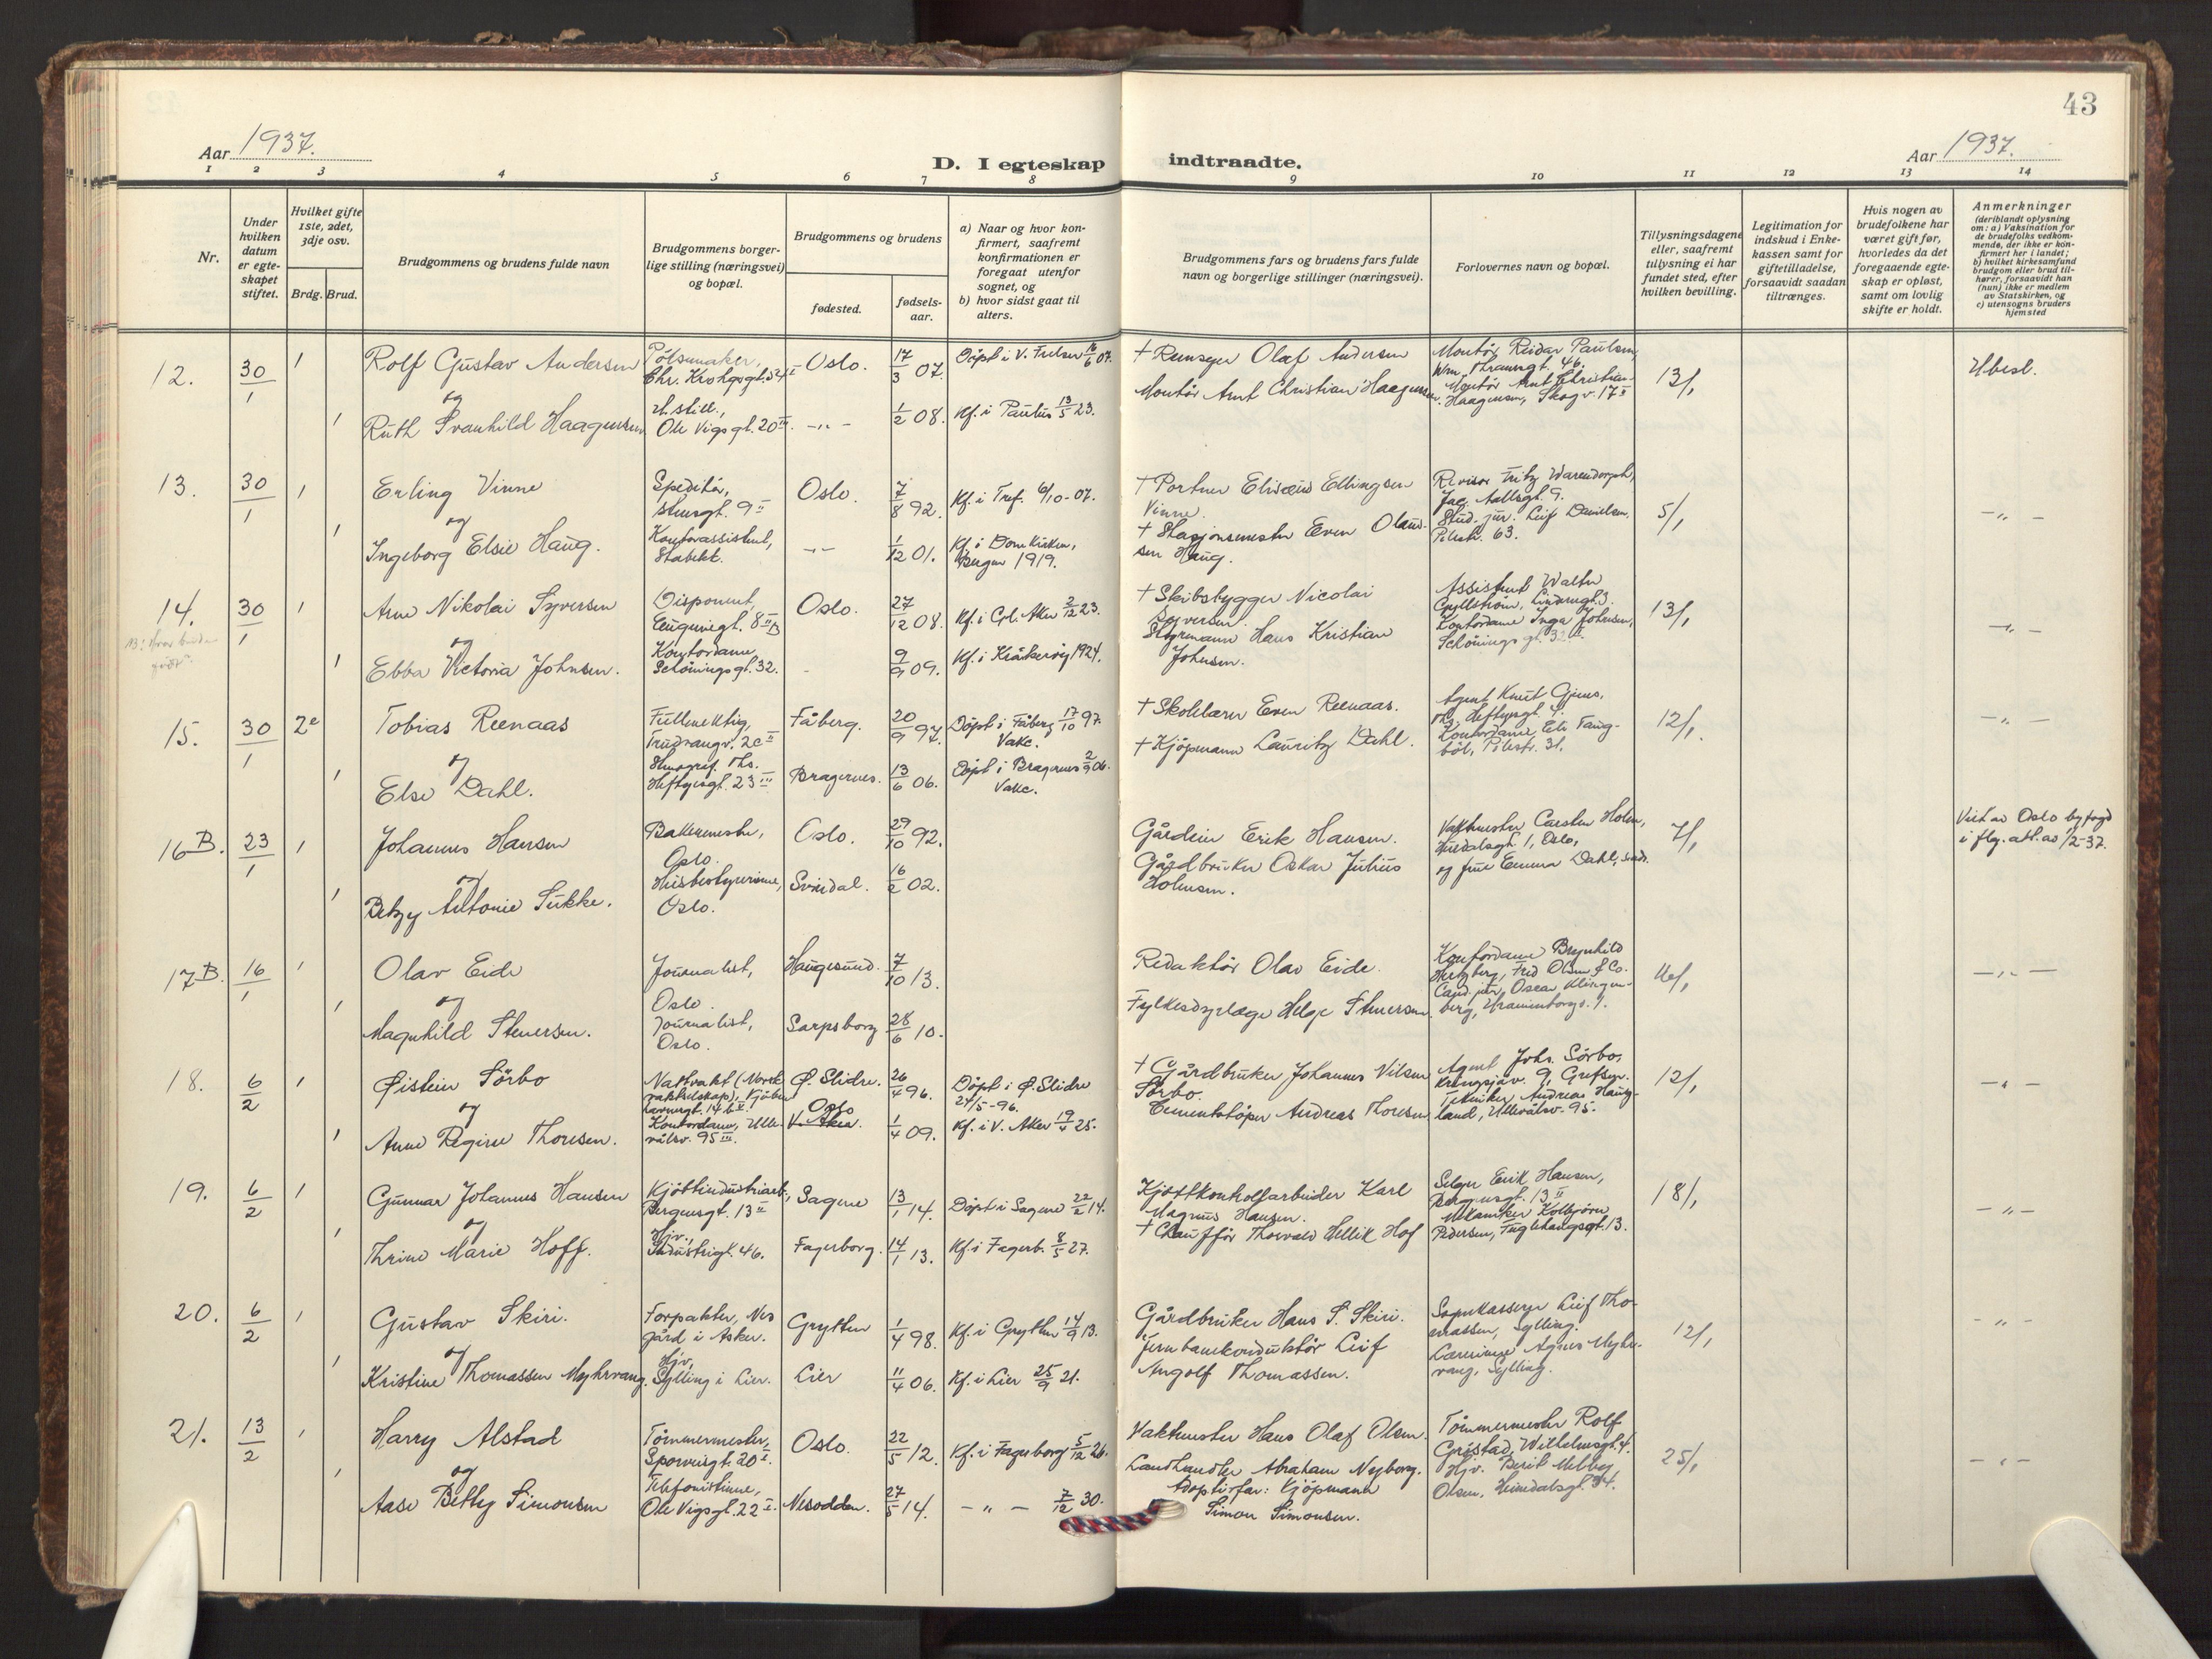 43
Aar 1937.
D. I egteskap indtraadte.
Aar 1937.
1 2 3 4 5 6 7 8 9 10 11 12 13 14
Nr.
Under hvilken datum er egteskapet stiftet.
Hvilket gifte 1ste, 2det, 3dje osv.
Brdg. Brud.
Brudgommens og brudens fulde navn
Brudgommens borgerlige stilling (næringsvei) og bopæl.
Brudgommens og brudens
fødested.
fødselsaar.
a) Naar og hvor konfirmert, saafremt konfirmationen er foregaat utenfor sognet, og
b) hvor sidst gaat til alters.
Brudgommens fars og brudens fars fulde navn og borgerlige stillinger (næringsvei).
Forlovernes navn og bopæl.
Tillysningsdagene eller, saafremt tillysning ei har fundet sted, efter hvilken bevilling.
Legitimation for indskud i Enkekassen samt for giftetilladelse, forsaavidt saadan tiltrænges.
Hvis nogen av brudefolkene har været gift før, hvorledes da det foregaaende egteskap er opløst, samt om lovlig skifte er holdt.
Anmerkninger
(deriblandt oplysning om: a) Vaksination for de brudefolks vedkommende, der ikke er konfirmert her i landet;
b) hvilket kirkesamfund brudgom eller brud tilhører, forsaavidt han (hun) ikke er medlem av Statskirken, og
c) utensogns bruders hjemsted
12. 30/1 1 Rolf Gustav Andersen Pölsemaker, Chr. Krohgsgt. 54 I Oslo. 17/3 07. Döpt i V. Frelser 16/6 07. † Olaf Andersen Montör Reidar Paulsen, Wm. Thranesgt. 46. 13/1 Ubesl.
og
1 Ruth Svanhild Haagensen U. still., Ole Vigs gt. 20 III. -"- 1/2 08. Kf. i Paulus 13/5 23. Montör Arnt Christian Haagensen. Montör Arnt Christian Haagensen, Skogv. 17 II
13. 30/1 1 Erling Vinne Speditör, 9 II Oslo. 7/8 92. Kf. i Tref. 6/10-07. † Portner Elisæus Ellingsen Vinne. Revisor Fritz Warendorph, Jac. Aallsgt. 9. 5/1 -"-
og
1 Ingeborg Elsie Haug. Kontorassistent, Stabekk. -"- 1/12 01. Kf. i Domkirken, Bergen 1919. † Stasjonsmester Even Olaussen Haug. Stud. jur. Leif Danielsen, Pilestr. 63.
14. 30/1 1 Arne Nikolai Syversen Disponent, Eugeniegt. 8 II B Oslo. 27/12 08. Kf. i Gl. Aker 2/12 23. † Skibsbygger Nicolai Syversen. Assistent Walter Gyllström, 13/1 -"-
og
1 Ebba Victoria Johnsen. Kontordame, Schönings gt. 32. 9/9 09. Kf. i Kråkeröy 1924. Styrmann Hans Kristian Johnsen. Kontordame Inga Johnsen, Schönings gt. 32
15. 30/1 2e Tobias Reenaas Fullmektig, Trudvangv. 2c II Fåberg. 20/9 97. Döpt i Fåberg 17/10 97. Vakc. † Skolelærer Even Reenaas. Agent Knut Gjems, Th. Heftyesgt. 12/1. -"-
og
1 Else Dahl. Th. Heftyesgt. 23 III Bragernes. 13/6 06. Döpt i Bragernes 2/9 06. Vakc. † Kjöpmann Lauritz Dahl. Kontordame Els Fangböl, Pilestr. 31.
16 B. 23/1 1 Johannes Hansen Bakermester, Oslo. Oslo. 29/10 92. Gårdeier Erik Hansen. Vaktmester Carsten Holm, 1, Oslo, 7/1 Viet av Oslo byfogd i flg. att. av 1/2-37.
og
1 Betzy Antonie Sukke. Husbestyrerinne, Oslo. Svindal. 16/2 02. Gårdbruker Oskar Julius Holmsen. og frue Emma Dahl, sads.
17 B. 16/1 1 Olav Eide Journalist, Oslo. Haugesund. 7/10 13. Redaktör Olav Eide. Kontordame Brynhild Hertzberg, Fred Olsen & Co. -"-
og
1 Magnhild Stenersen. Journalist, Oslo. Sarpsborg 28/6 10. Fylkesdyrlæge Helge Stenersen. Cand. jur. Oscar Klingenberg, Uranienborgv. 1.
18. 6/2 1 Øistein Sörbo Nattvakt (Norsk vaktselskap), Ø. Slidre. 26/4 96. Döpt i Ø. Slidre 24/5-96. † Gårdbruker Johannes Nilsen Sörbo. Agent Johs. Sörbo, Kringsjåv. 9, Grefsen. 12/1 -"-
og
1 Anne Regine Thoresen. Kontordame, Ullevålsv. 95 III. Oslo V. Aker. 1/4 09. Kf. i V. Aker 19/4 25. Cementstöper Andreas Thoresen Tekniker Andreas Haugland, Ullevålsv. 95.
19. 6/2 1 Gunnar Johannes Hansen Kjöttindustriarb., Bergensgt. 13 II Sagene 13/1 14. Döpt i Sagene 22/2 14. Kjöttkontrollarbeider Karl Magnus Hansen. Selger Erik Hansen, Bergensgt. 13 II 18/1 -"-
og
1 Thrine Marie Hoff. Hjv., Industrigt. 46. Fagerborg. 14/1 13. Kf. i Fagerb. 8/5 27. † Chauffør Thorvald Hellik Hof Mekaniker Kolbjörn Pedersen, Fuglehaugsgt. 13.
20. 6/2 1 Gustav Skiri. Forpakter, Nes gård i Asker. Grytten 1/4 98. Kf. i Grytten 14/9 13. Gårdbruker Hans S. Skiri. Sognekasserer Leif Thomassen, Sylling. 12/1 -"-
og
1 Kristine Thomassen Myhrvang. Hjv., Sylling i Lier. Lier 11/4 06. Kf. i Lier 25/9 21. Jernbanekonduktör Leif Angolf Thomassen. Lærerinne Agnes Myhrvang, Sylling.
21. 13/2 1 Harry Alstad Tömmermester, Sporveisgt. 20 I. Oslo. 22/5 12. Kf. i Fagerborg 5/12 26. Vaktmester Hans Olaf Olsen. Tömmermester Rolf Gristad, Wilhelmsgt. 4. 25/1 -"-
og
1 Aase Betty Simonsen Telefonistinne, Ole Vigsgt. 22 I. Nesodden. 27/5 14. -"- 7/12 30. Landhandler Abraham Nyborg. Adoptivfar: Kjöpmann Simon Simonsen. Hjv. Berit Olsen, Heimdalsgt. 34.